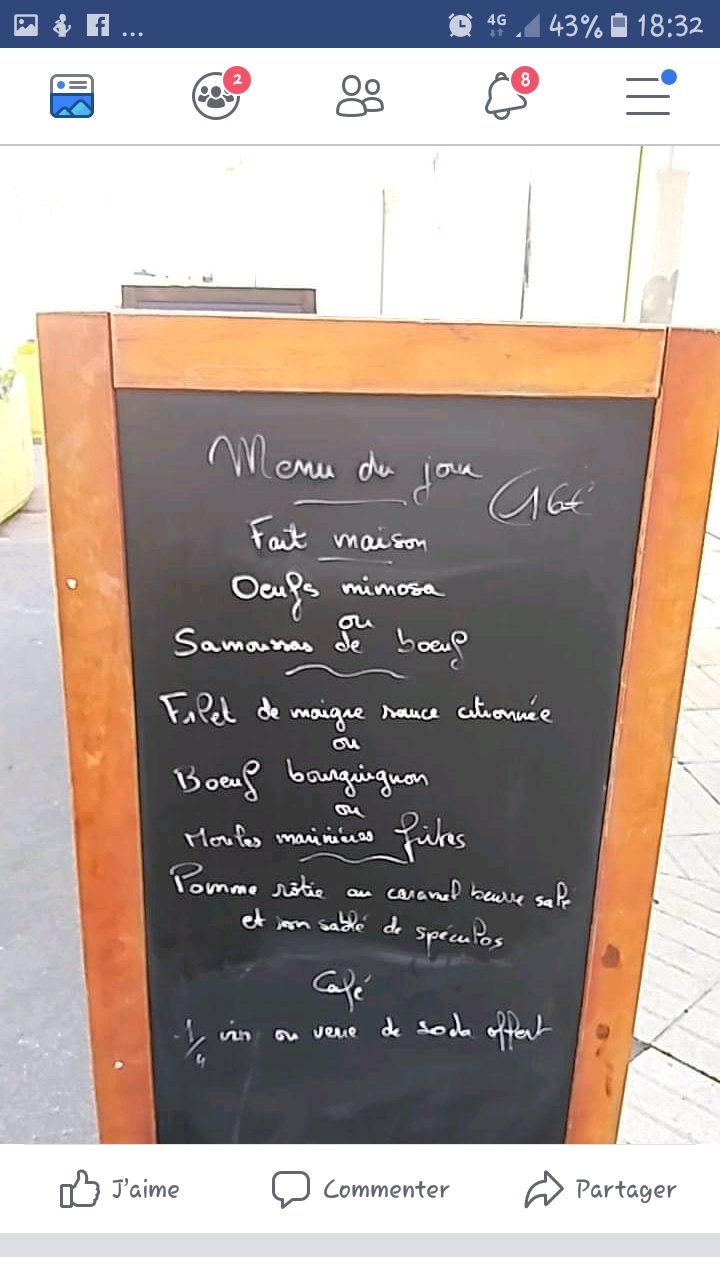 ... 4G 43% 18:32
2 8
Menu du jour
16€
Fait maison
Oeufs mimosa
ou
Samoussas de boeuf
Filet de maigre sauce citronnée
ou
Boeuf bourguignon
ou
Moules marinières frites
Pomme rôtie au caramel beurre salé
et son sablé de spéculos
Café
1/4 vin ou verre de soda offert
J'aime Commenter Partager